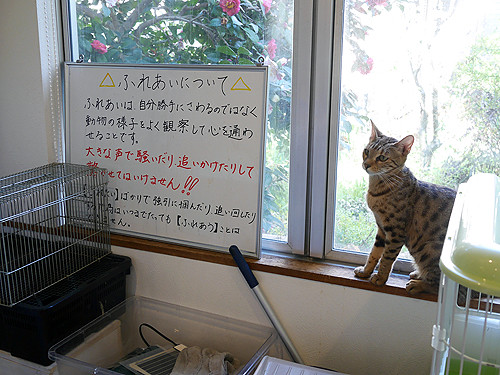 △ふれあいについて△
ふれあいは、自分勝手にさわるのではなく
動物の様子をよく観察して心を通わ
せることです。
大きな声で騒いだり、追いかけたりして
せてはいけません!!
ばかりで強引に掴んだり、追い回したり
はいつまでたっても【ふれあう】ことは
せん。